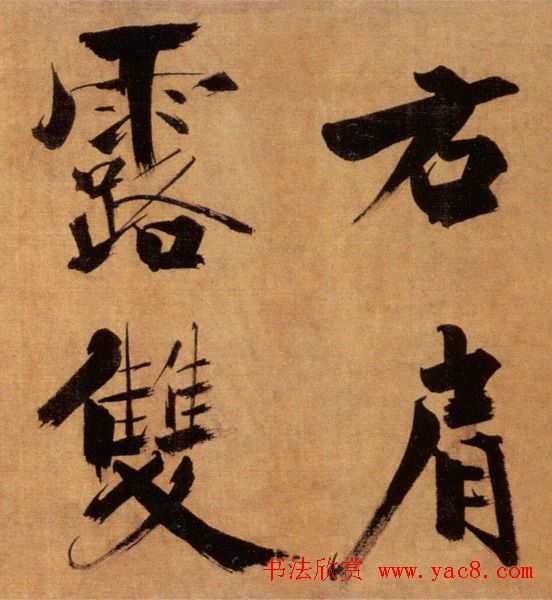 右肩
露雙
书法欣赏 www.yac8.com